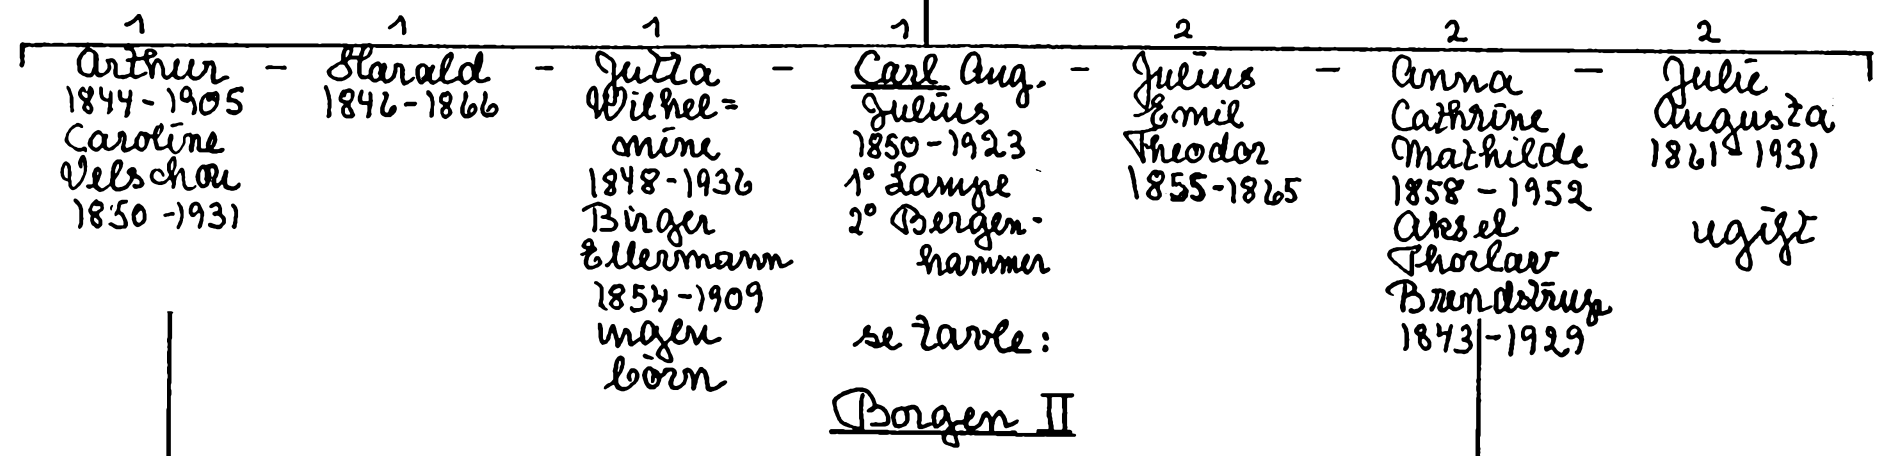 1
Arthur
1844-1905
Caroline
Velschou
1850-1931
-
1
Harald
1846-1866
-
1
Jutta
Wilhel=
mine
1848-1936
Birger
Ellermann
1854-1909
ingen
börn
-
1
Carl Aug.
Julius
1850-1923
1° Lampe
2° Bergen-
hammer
se tavle:
Borgen II
-
2
Julius
Emil
Theodor
1855-1865
-
2
Anna
Cathrine
Mathilde
1858-1952
Aksel
Thorlav
Brendstrup
1843-1929
-
2
Julie
Augusta
1861-1931
ugift